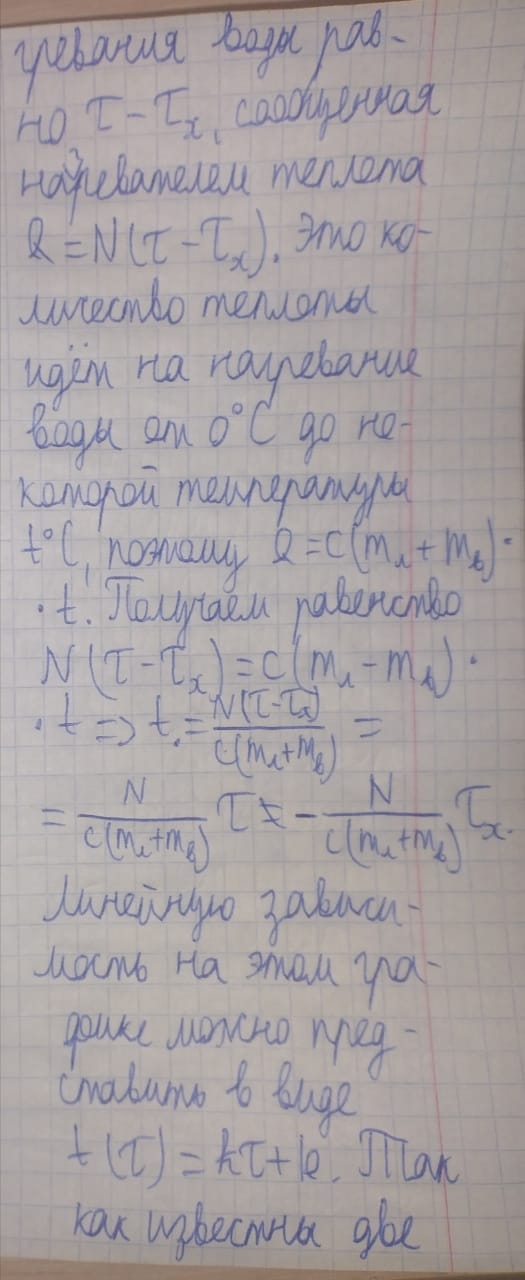 гревания воды рав-
но τ-τₓ, сообщенная
нагревателем теплота
Q=N(τ-τₓ). Это ко-
личество теплоты
идёт на нагревание
воды от 0°C до не-
которой температуры
t°C, поэтому Q=c(mл+mв)·
·t. Получаем равенство
N(τ-τₓ)=c(mл-mв)·
·t => t = N(τ-τₓ)/c(mл+mв) =
= N/c(mл+mв) τ - N/c(mл+mв) τₓ.
Линейную зависи-
мость на этом гра-
фике можно пред-
ставить в виде
t(τ)=kτ+b. Так
как известны две